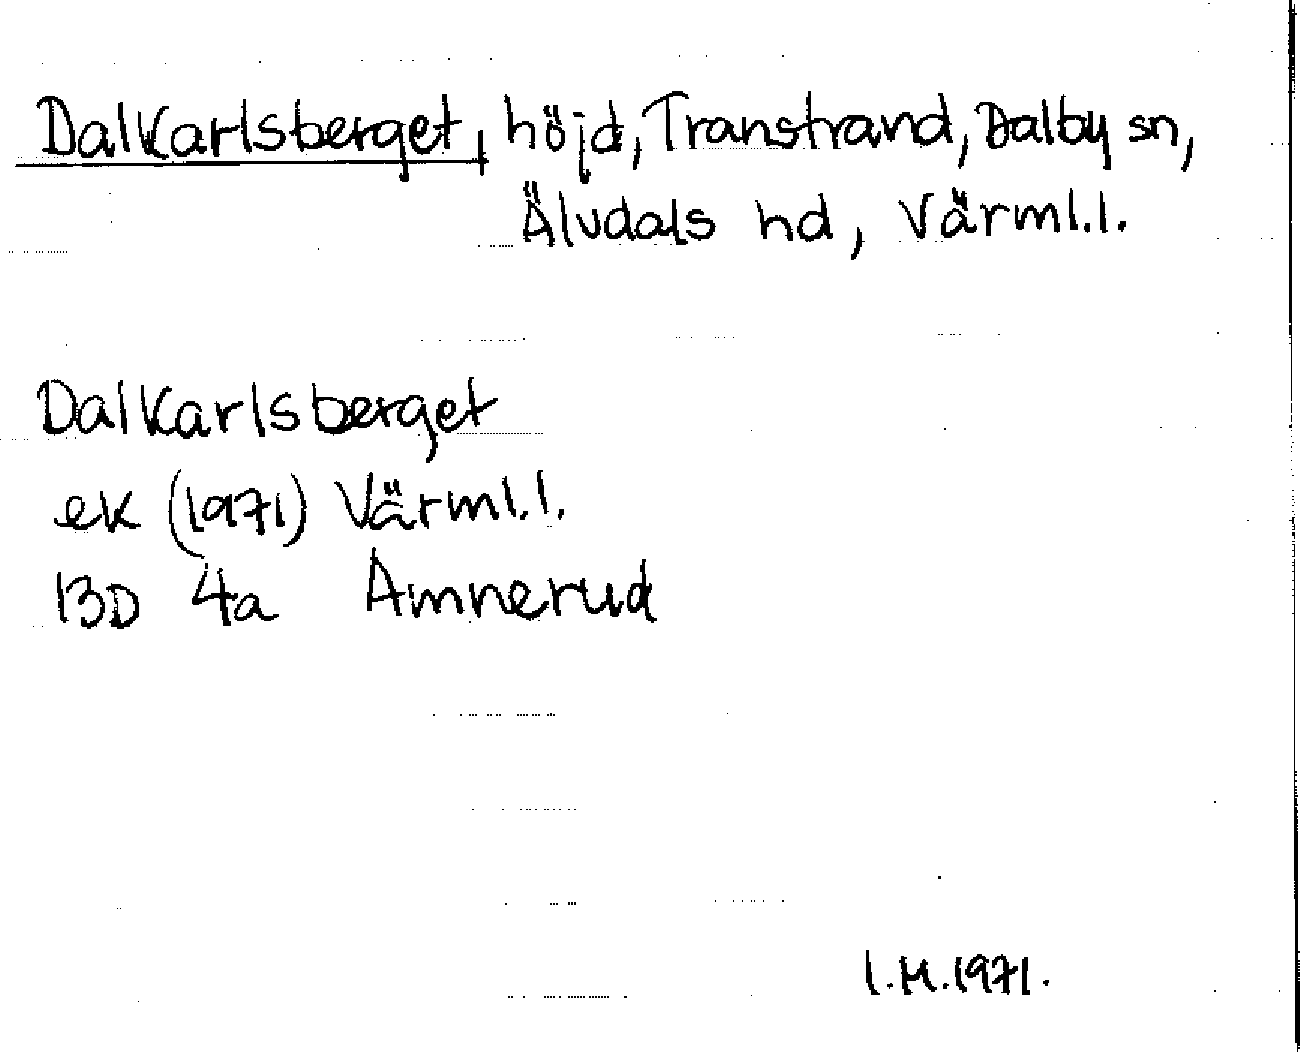 Dalkarlsberget, höjd, Transtrand, Dalby sn,
Älvdals hd, Värml.l.
Dalkarlsberget
ek (1971) Värml.l.
13D 4a Amnerud
I.M.1971.